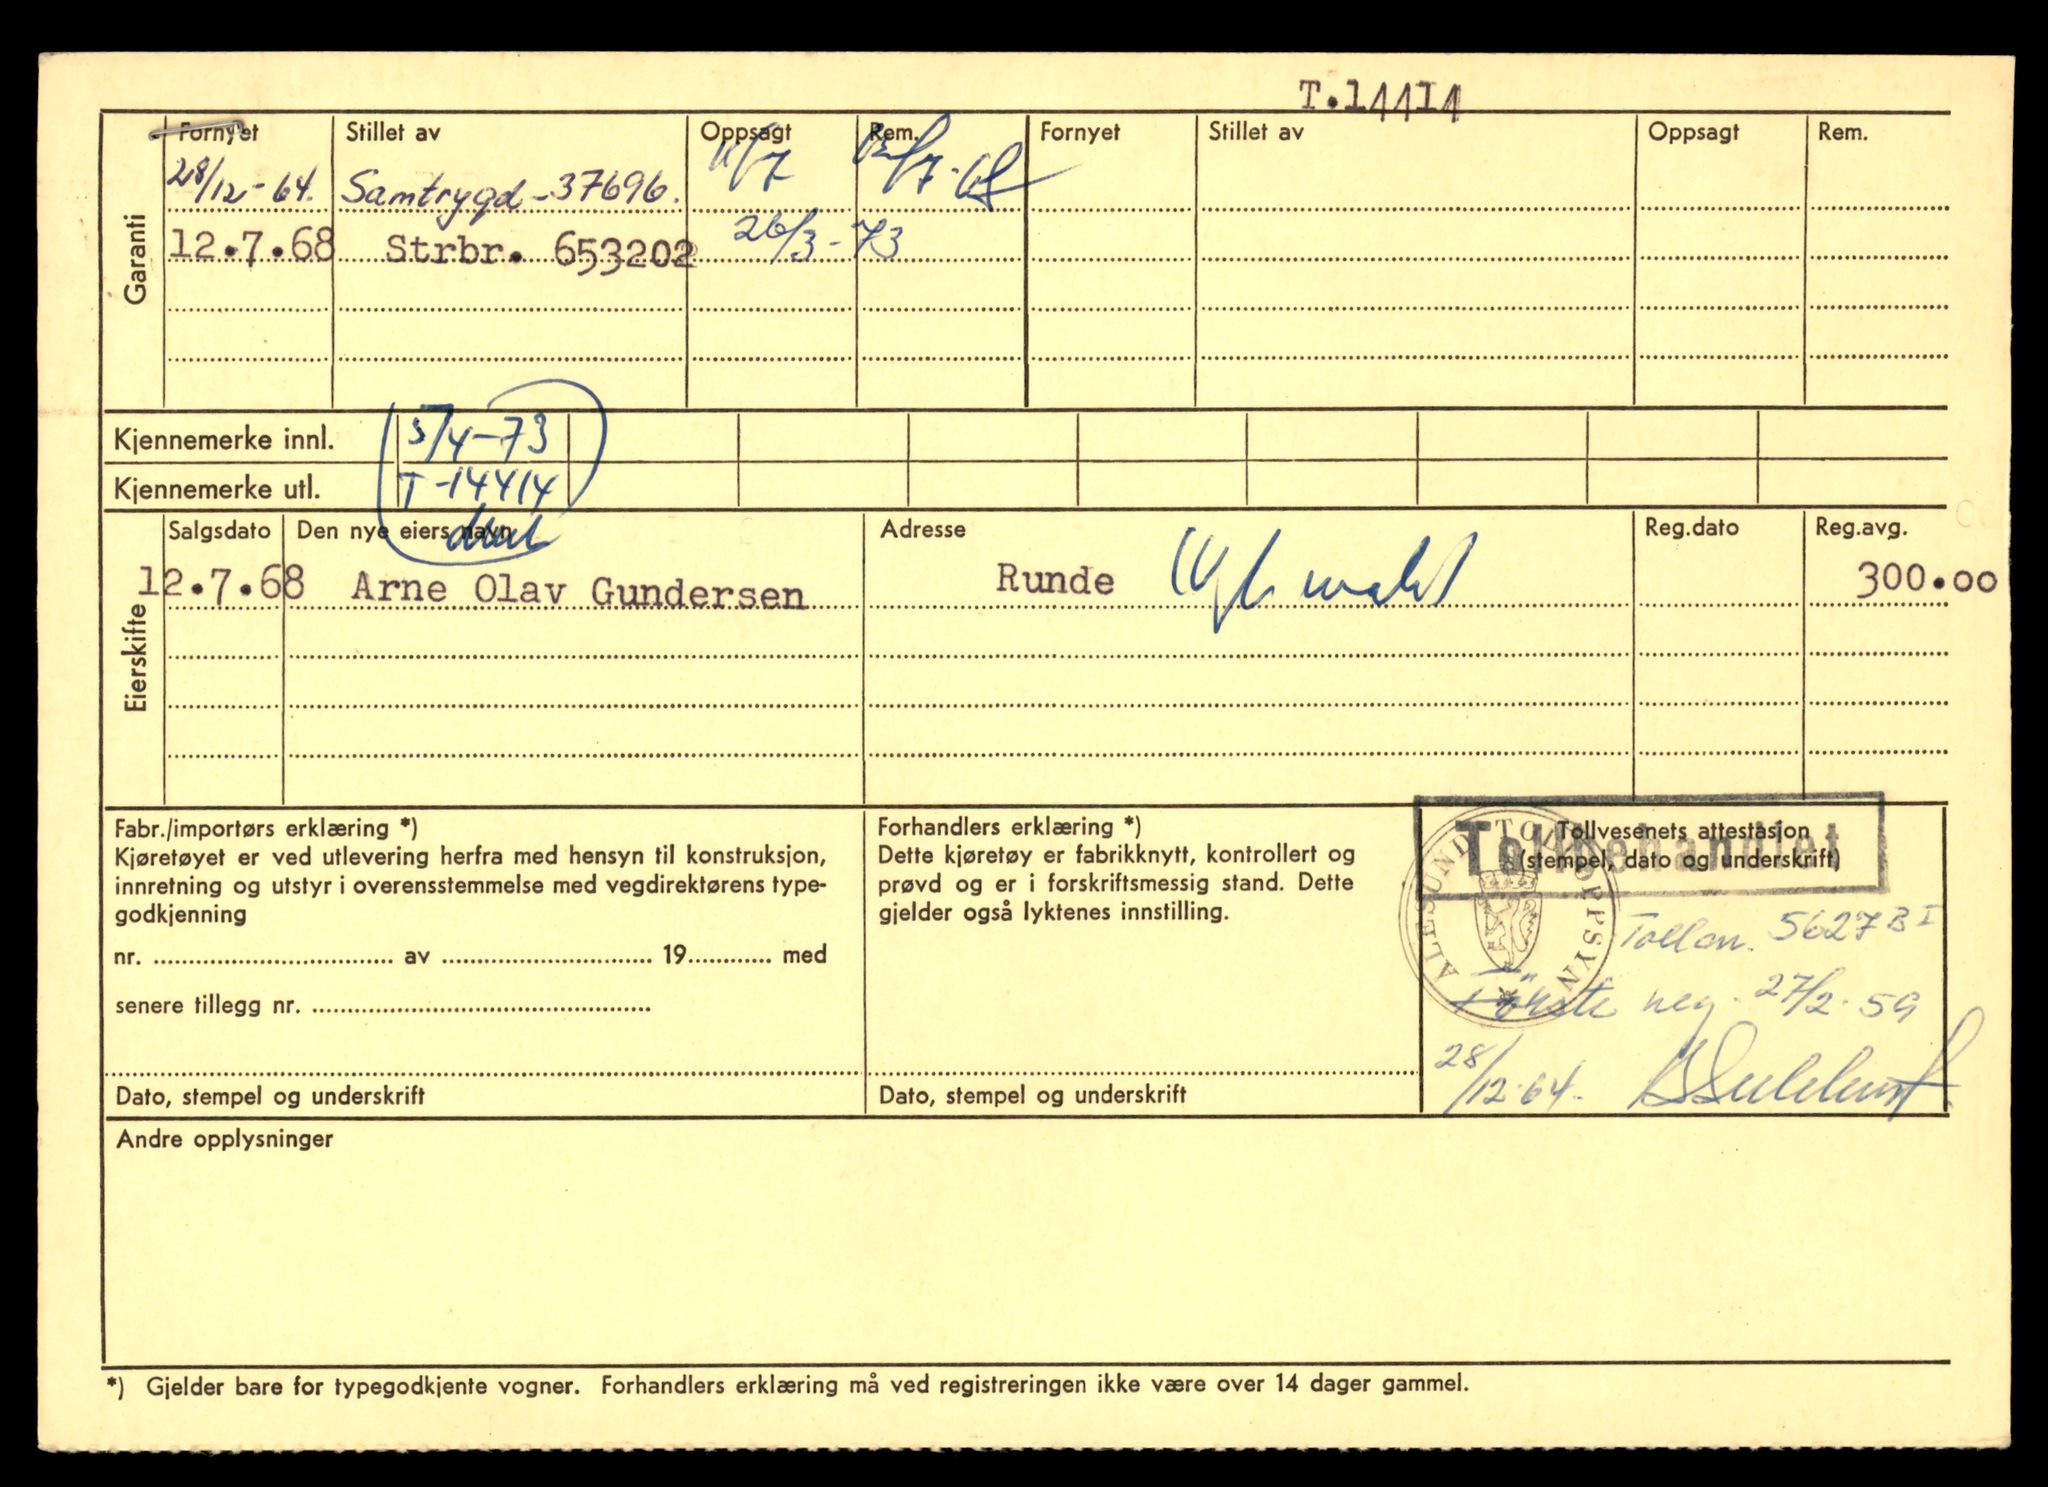 T.14414
Garanti
Fornyet Stillet av Oppsagt Rem. Fornyet Stillet av Oppsagt Rem.
28/12-64. Samtrygd-37696. 11/7 12/7-68
12.7.68 Strbr. 653202 26/3-73
Kjennemerke innl. 5/4-73
Kjennemerke utl. T-14414
Eierskifte
Salgsdato Den nye eiers navn Adresse Reg.dato Reg.avg.
12.7.68 Arne Olav Gundersen Runde 300.00
Fabr./importørs erklæring *)
Kjøretøyet er ved utlevering herfra med hensyn til konstruksjon,
innretning og utstyr i overensstemmelse med vegdirektørens type-
godkjenning
nr. av 19 med
senere tillegg nr.
Dato, stempel og underskrift
Forhandlers erklæring *)
Dette kjøretøy er fabrikknytt, kontrollert og
prøvd og er i forskriftsmessig stand. Dette
gjelder også lyktenes innstilling.
Dato, stempel og underskrift
Tollvesenets attestasjon
(stempel, dato og underskrift)
Tollbehandlet
ÅLESUND TOLLOPPSYN
Tollan. 5627 B I
Første reg. 27/2-59
28/12-64.
Andre opplysninger
*) Gjelder bare for typegodkjente vogner. Forhandlers erklæring må ved registreringen ikke være over 14 dager gammel.